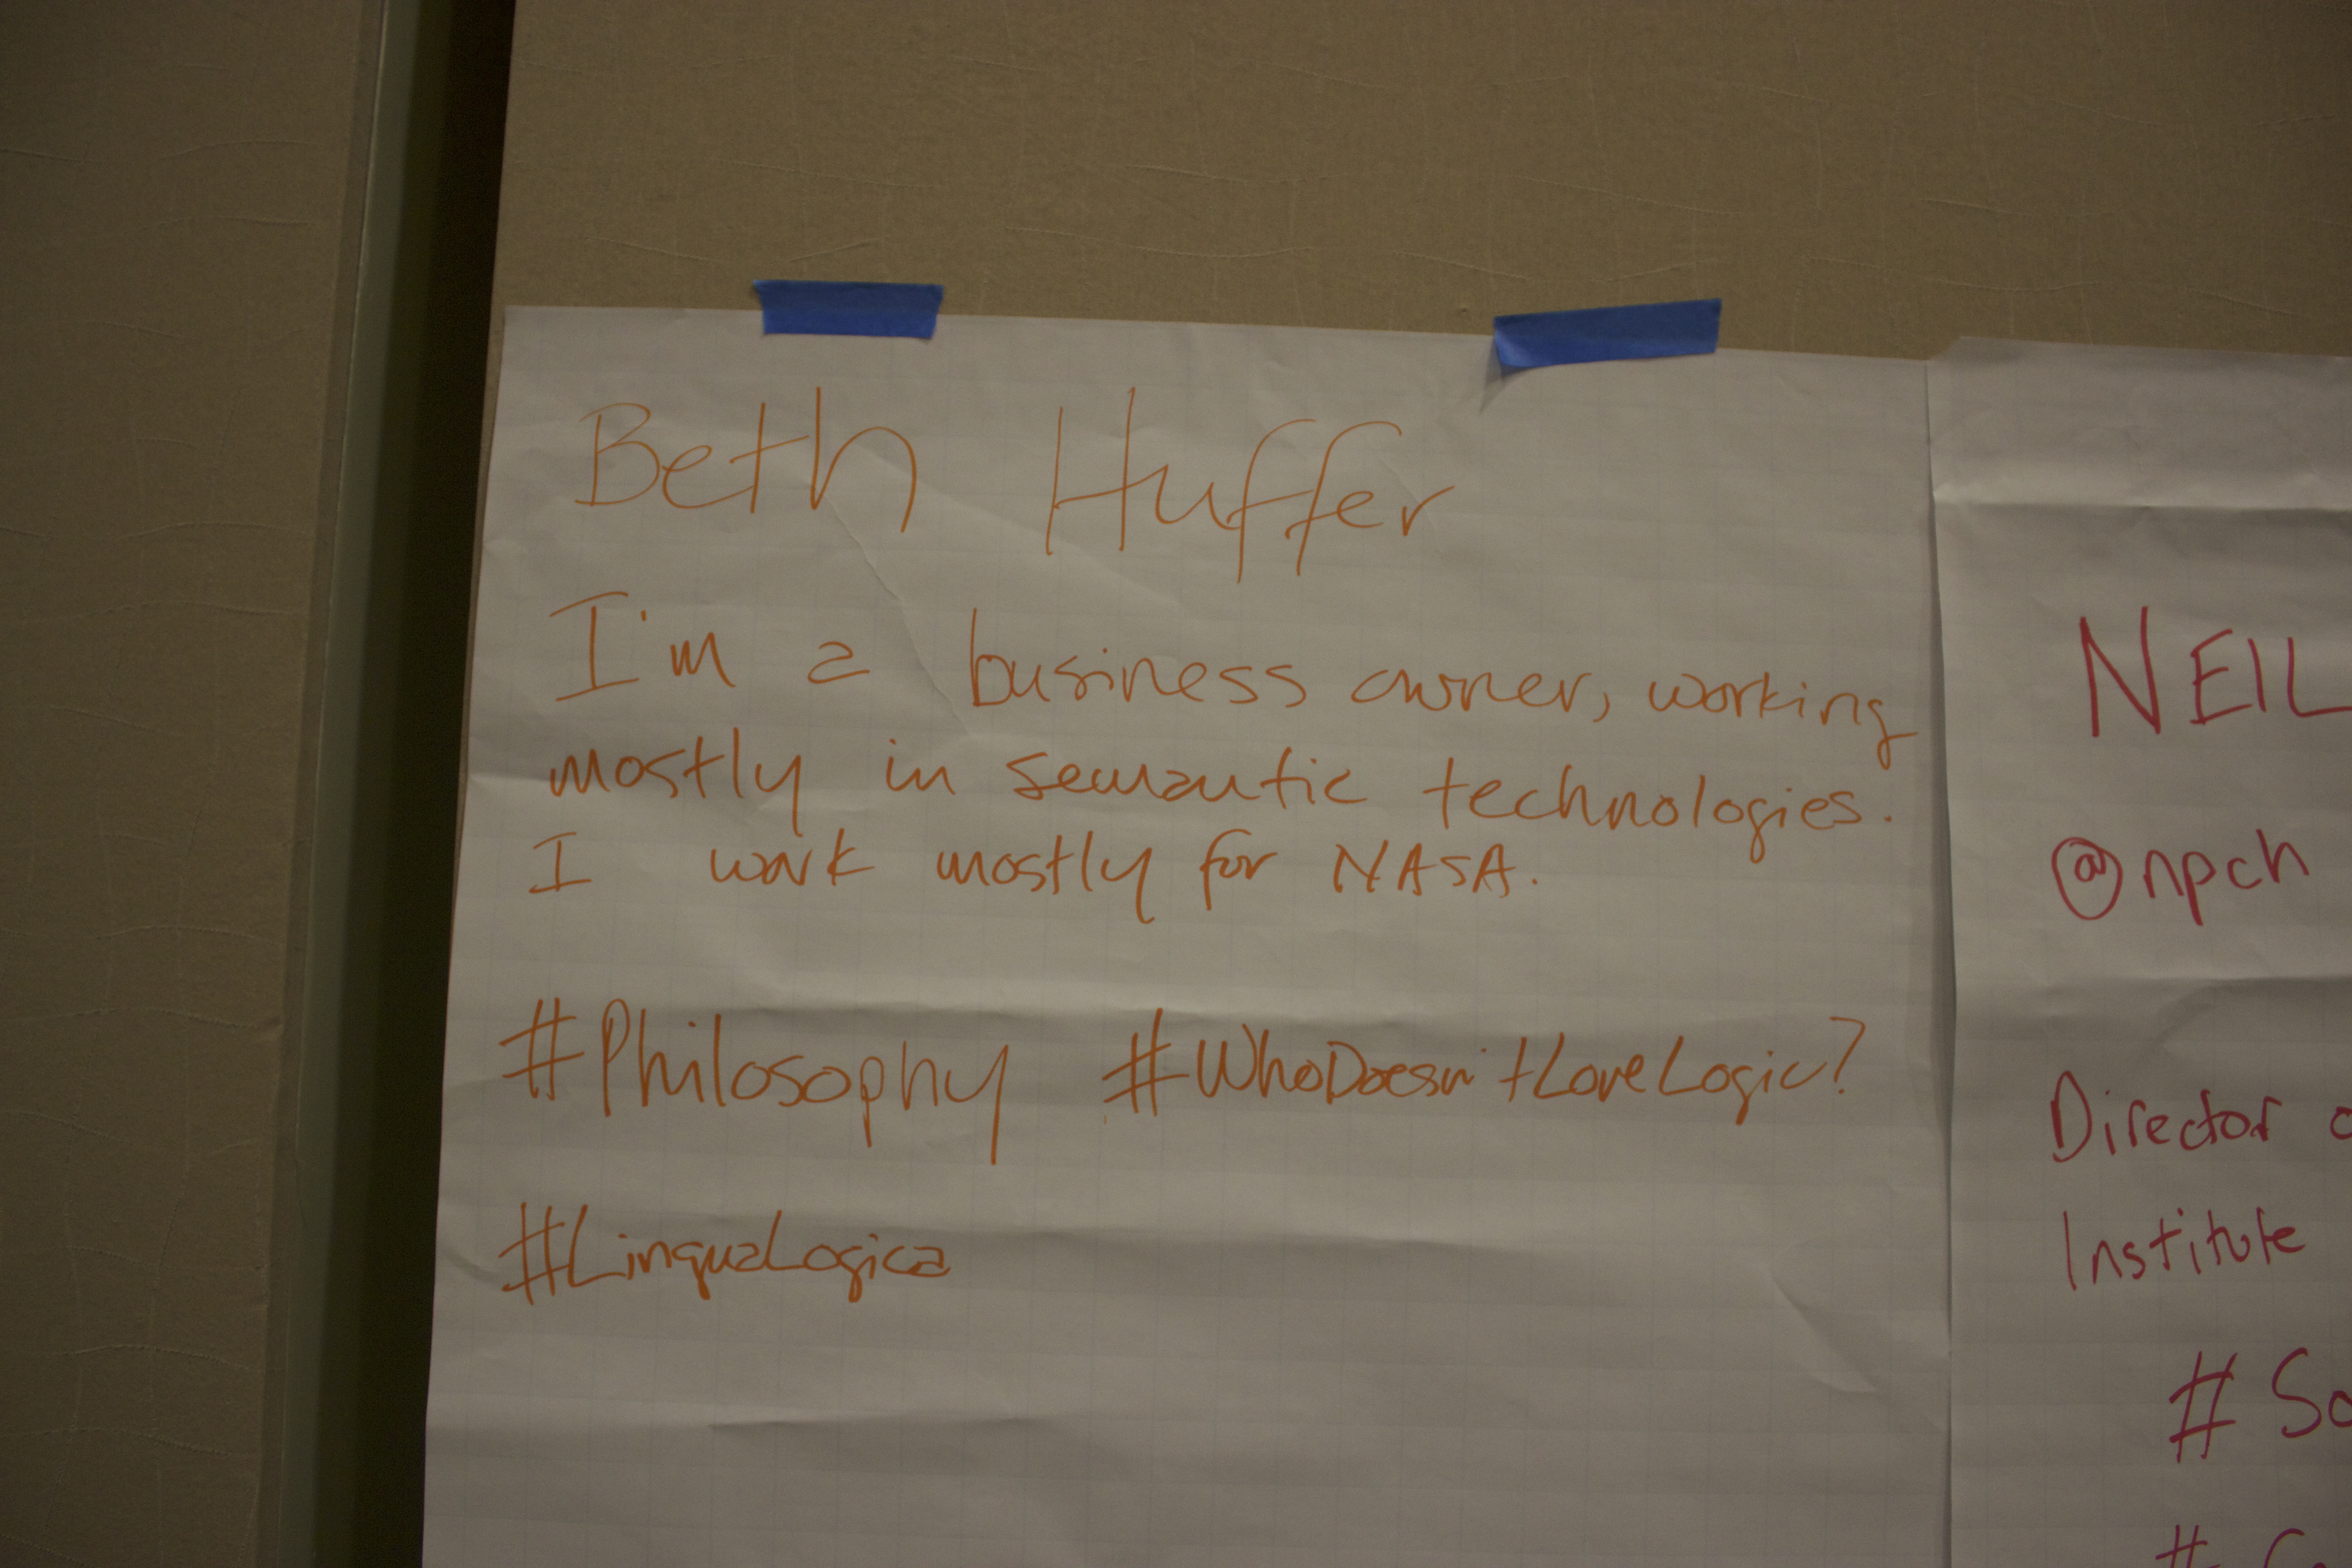 Beth Huffer
I'm a business owner, working
mostly in semantic technologies.
I work mostly for NASA.
#Philosophy #WhoDoesn'tLoveLogic?
#LinguaLogica
NEIL
@npch
Director
Institute
#
#